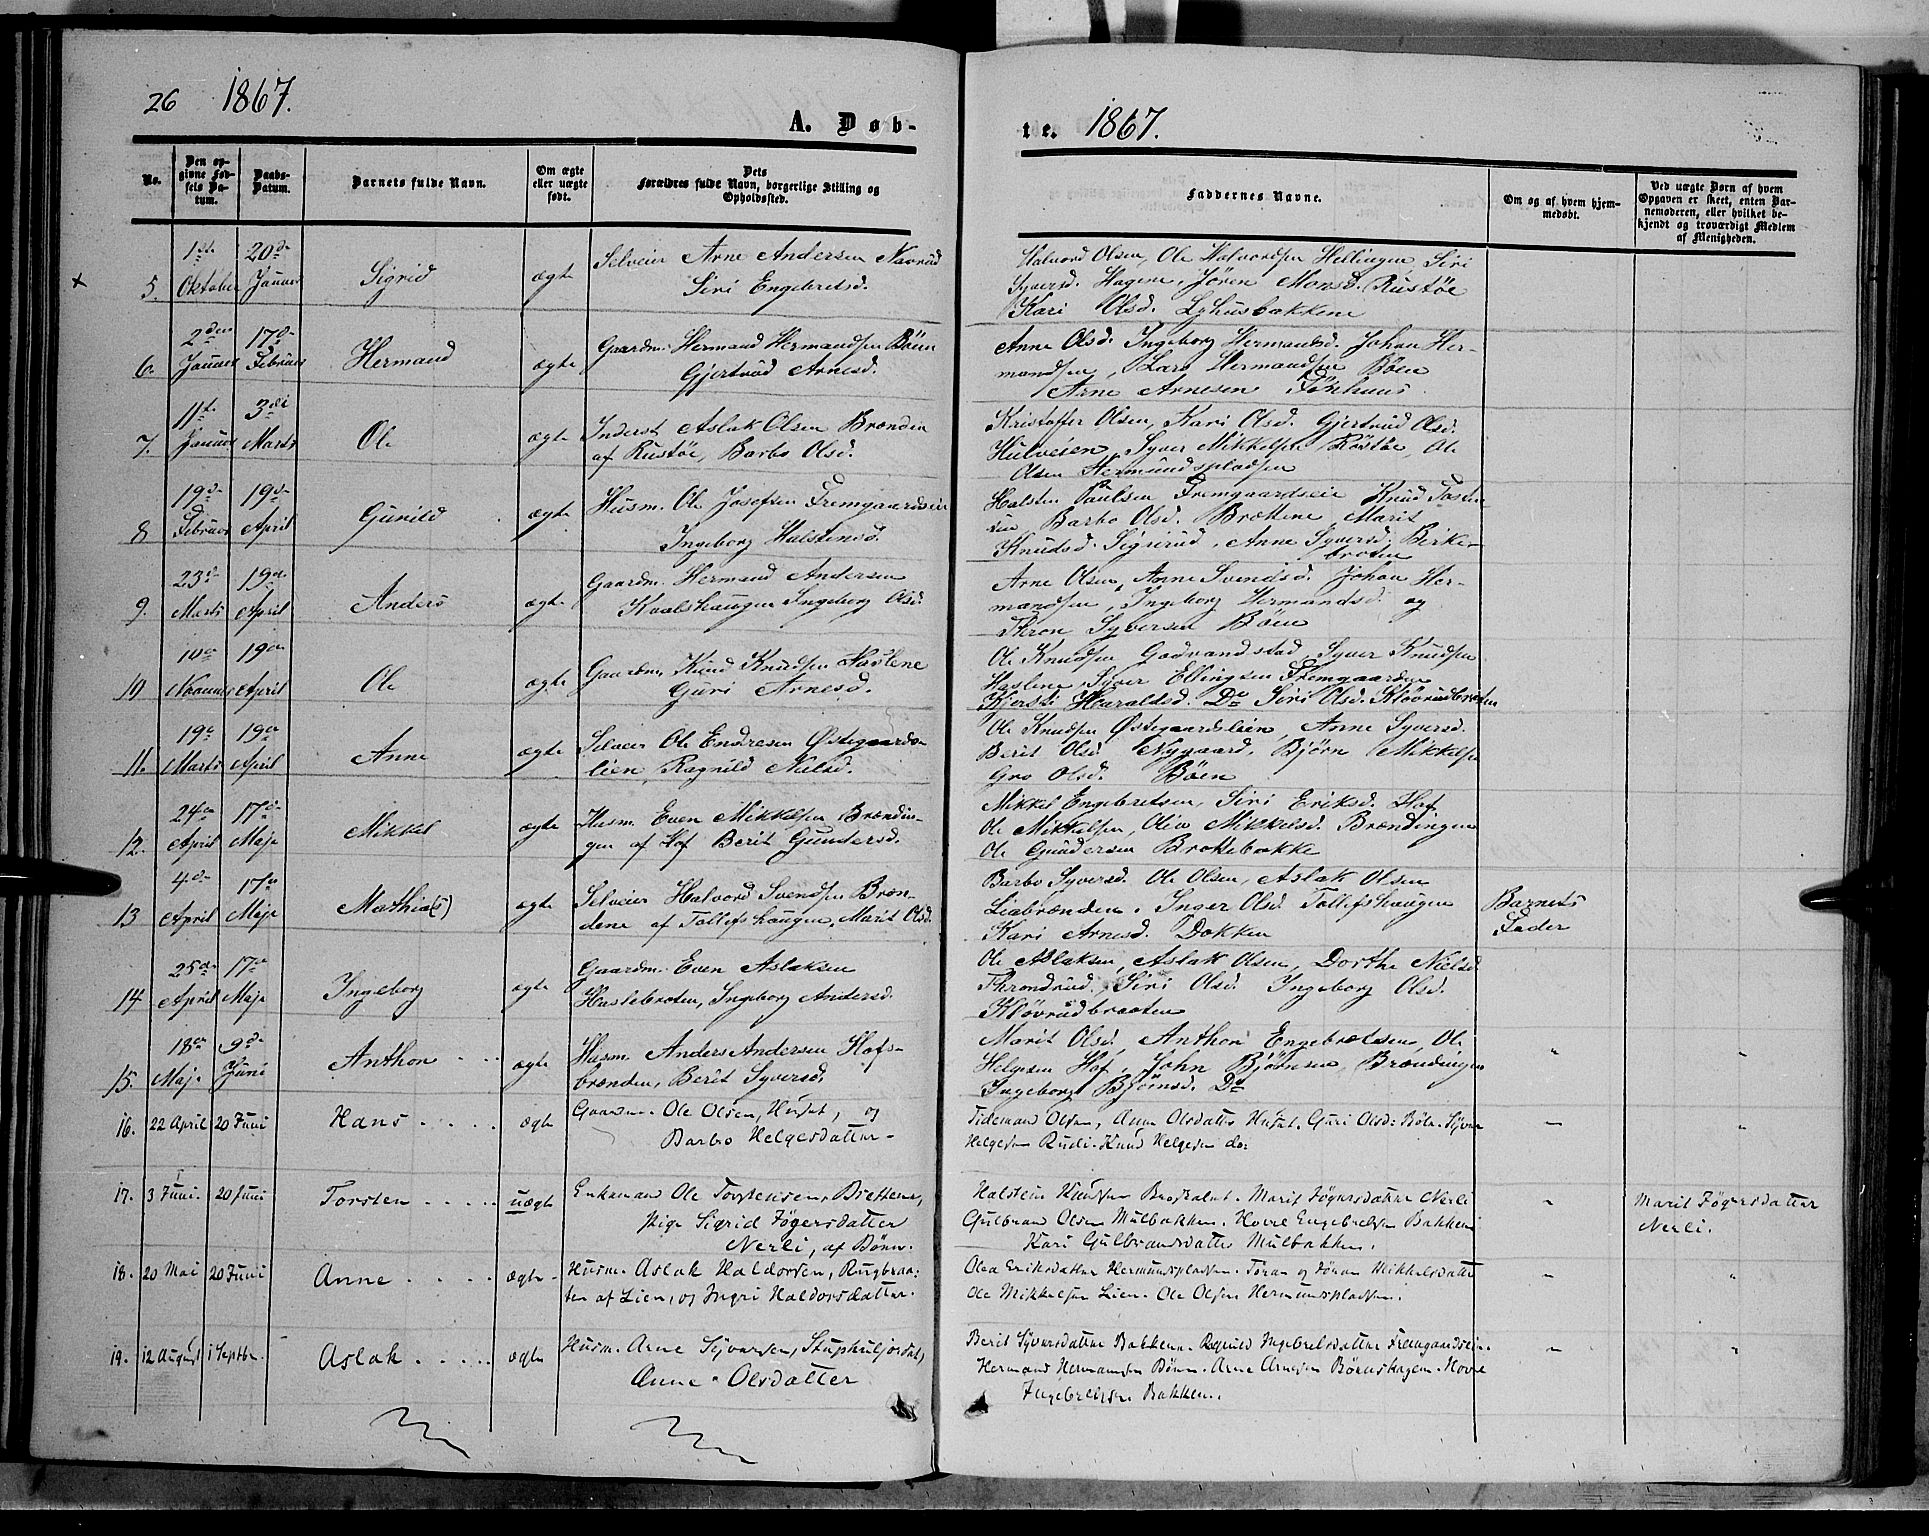 26 1867.
A. Døb-
No.
Den op-
givne Fød-
sels Da-
tum.
Daabs-
Datum.
Barnets fulde Navn.
Om ægte
eller uægte
født.
Dets
Forældres fulde Navn, borgerlige Stilling og
Opholdssted.
5. 1ste Oktober 20de Januar Sigrid ægte
Selveier Arne Andersen Navrud
Siri Engebretsd.
6. 2den Januar 17de Februar Hermand ægte
Gaardm. Hermand Hermandsen Bøen
Gjertrud Arnesd.
7. 11te Januar 3die Marts Ole ægte
Inderst Aslak Olsen Brænden
af Rustøe, Barbo Olsd.
8 19de Februar 19de April Gunild ægte
Husm. Ole Josefsen Fremgaardseie
Ingeborg Halstensd.
9. 23de Marts 19de April Anders ægte
Gaardm. Hermand Andersen
Kvalshaugen Ingeborg Olsd.
10 19de April Ole ægte
Gaardm. Knud Knudsen Haslene
Guri Arnesd.
11. 19de Marts 19de April Anne ægte
Selveier Ole Endresen Østegaards-
lien, Ragnild Nielsd.
12. 24de April 17de Maje Mikkel ægte
Husm. Even Mikkelsen Brændin-
gen af Hof Berit Gundersd.
13 4de April 17de Maje Mathia(s) ægte
Selveier Halvord Svendsen Bræn-
dene af Tollefshaugen, Marit Olsd.
14 25de April 17de Maje Ingeborg ægte
Gaardm. Even Aslaksen
Haslebroten, Ingeborg Andersd.
15. 18de Maje 9de Juni Anthon ægte
Husm. Anders Andersen Hofs-
brænden, Berit Syversd.
16. 22 April 20 Juni Hans ægte
Gaardm. Ole Olsen, Huset, og
Barbo Helgesdatter
17. 3 Juni. 20 Juni Torsten uægte
Enkemand Ole Torstensen, Brettene,
Pige Sigrid Jøgersdatter
Nerli, af Bøen.
18. 20 Mai 20 Juni Anne ægte
Husm. Aslak Haldorsen, Rugbraa-
ten af Lien, og Ingri Haldorsdatter.
19. 12 August 1 Septbr. Aslak ægte
Husm. Arne Syversen,
Anne Olsdatter
te. 1867.
Faddernes Navne.
Om og af hvem hjem-
medøbt.
Ved uægte Børn af hvem
Opgaven er skeet, enten Bar-
nemoderen, eller hvilket be-
kjendt og troværdigt Medlem
af Menigheden.
Halvord Olsen, Ole Halvordsen Hellingen Siri
Syversd. Hagene, Jøren Monsd. Rustøe
Kari Olsd.
Anne Olsd. Ingeborg Hermandsd. Johan Her-
mandsen, Lars Hermandsen Bøen
Arne Arnesen Tønhuus
Kristoffer Olsen, Kari Olsd. Gjertrud Olsd.
Syver Mikkelsen Rustøe, Ole
Olsen Hermundspladsen
Halsten Paulsen Fremgaardseie Knud Tosten-
sen, Barbo Olsd. Brættene, Marit
Knudsd. Sigrerud, Anne Syversd. Birke-
broten
Arne Olsen, Anne Svendsd. Johan Her-
mandsen, Ingeborg Hermandsd. og
Thron Syversen Bøen
Ole Knudsen Godvandstad, Syver Knudsen
Haslene, Syver Ellingsen Fremgaarden
Kjersti Haraldsd. Do Siri Olsd. Kløvrudbraaten
Ole Knudsen Østegaardslien, Anne Syversd.
Berit Olsd. Nygaard, Bjørn Mikkelsen
Gro Olsd. Bøen
Mikkel Engebretsen, Siri Eriksd. Hof
Ole Mikkelsen, Olia Mikkelsd. Brændingen
Ole Gundersen Brokkebakke
Barbo Syversd. Ole Olsen, Aslak Olsen
Liabrænden. Inger Olsd. Tollefshaugen
Kari Arnesd. Dokken
Barnets
Fader
Ole Aslaksen, Aslak Olsen, Dorthe Nielsd.
Throndrud. Siri Olsd. Ingeborg Olsd.
Kløvrudbraaten
Marit Olsd. Anthon Engebretsen, Ole
Helgesen Hof, John Bjørnsen, Brændingen
Ingeborg Bjørnsd. Do
Tideman Olsen, Anne Olsdatter Huset. Guri Olsd: Bøle. Syver
Helgesen Rudi. Knud Helgesen do:
Halstein Knudsen. Marit Jøgersdatter Nerli
Gulbrand Olsen Mulbakken. Hovel Engebretsen Bakken
Kari Gulbrandsdatter Mulbakken.
Marit Jøgersdatter
Nerli.
Olea Eriksdatter Hermundspladsen. Toran og Jøran Mikkelsdatter
Ole Mikkelsen Lien. Ole Olsen Hermundspladsen.
Berit Syversdatter Bakken. Ragnild Ingebretsdatter Fremgaardseie.
Hermand Hermandsen Bøen. Arne Arnesen Børnshagen. Hovel
Ingebretsen Bakken.